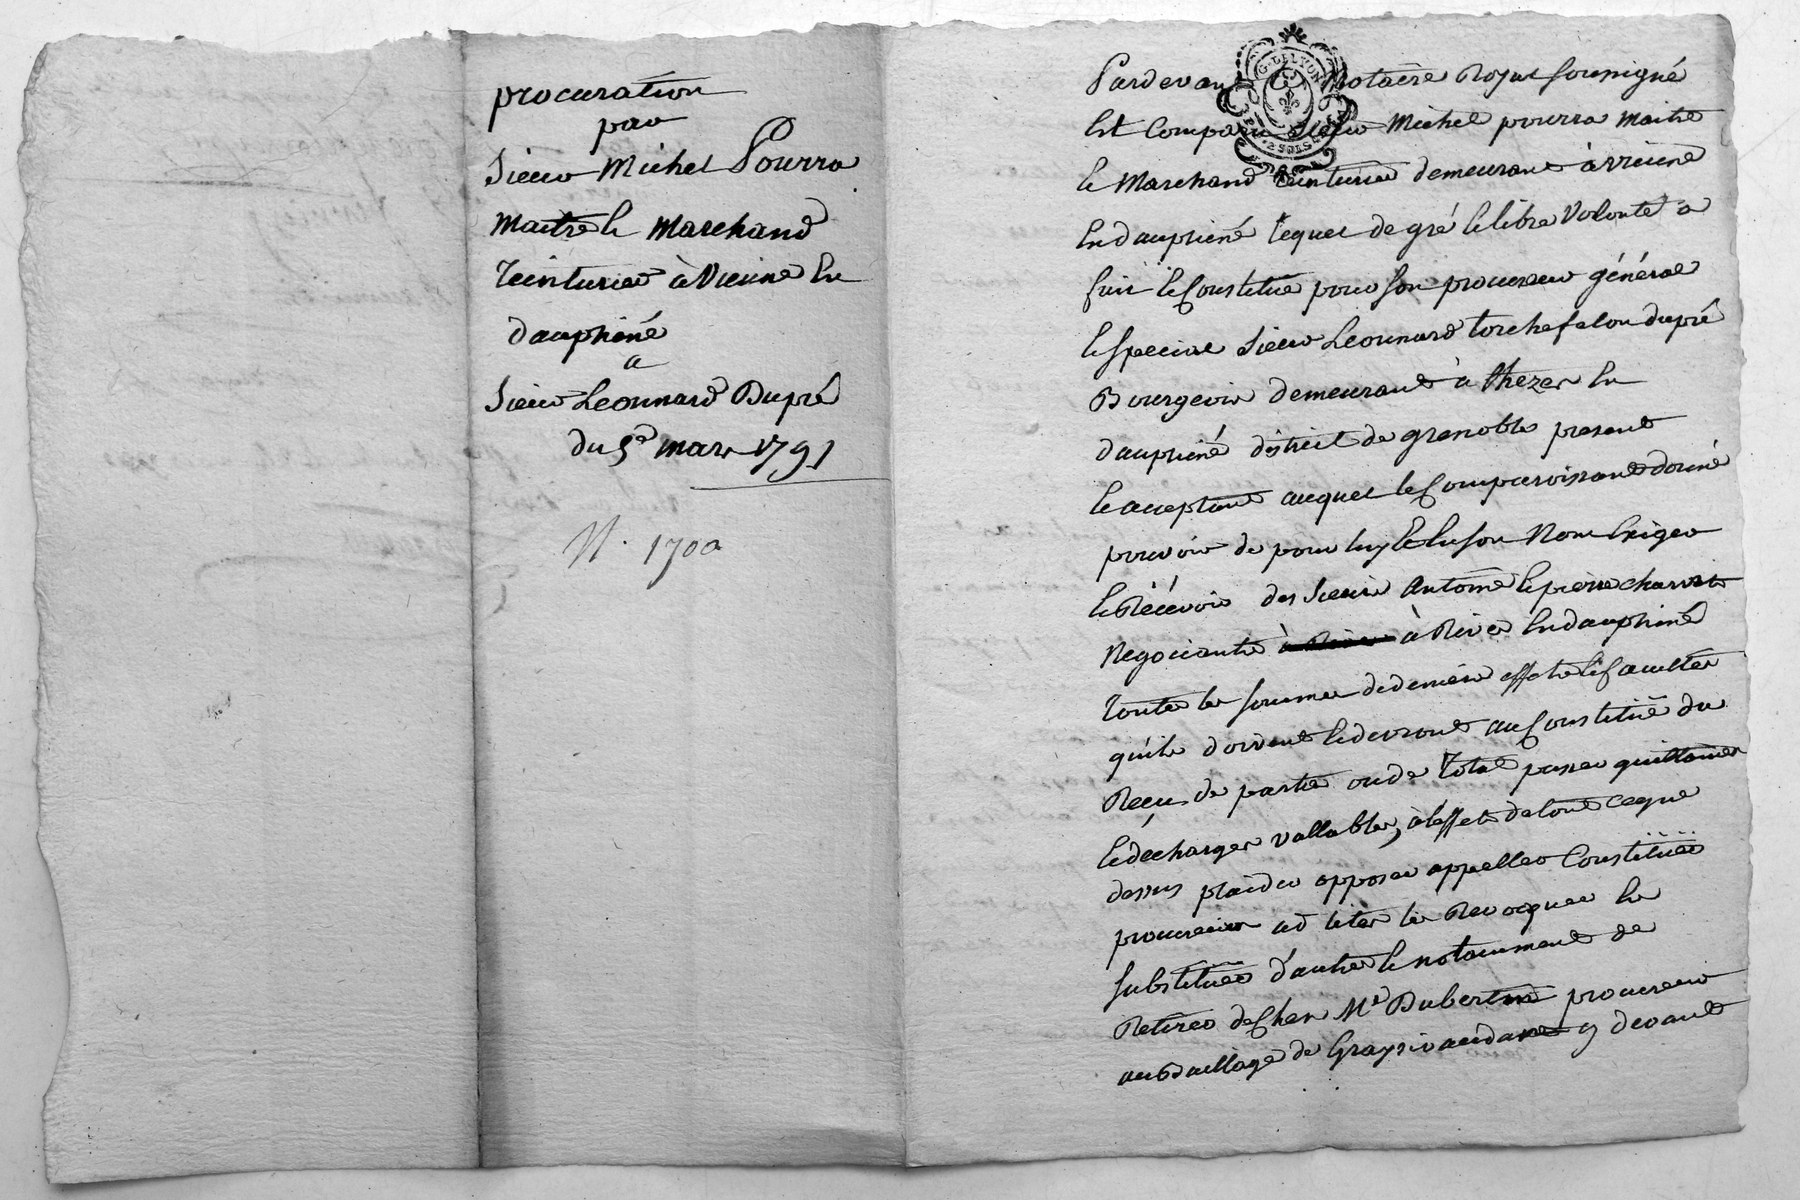 procuration
par
Sieur Michel Pourra
Maitre & Marchand
Teinturier à Vienne En
dauphiné
a
Sieur Leonnard Dupré
du 5e mars 1791
N. 1700
G. DE LYON
2 SOLS
Pardevant Notaire Royal soussigné
Est Comparu Sieur Michel pourra Maitre
& Marchand teinturier demeurant à Vienne
En dauphiné lequel de gré & libre Volonté a
fait & Constitué pour son procureur général
& special Sieur Leonnard torchefelon dupré
Bourgeois demeurant à thezes En
dauphiné district de grenoble present
& acceptant auquel le Comparoissant donne
pouvoir de pour luy & En son Nom Exiger
& Récévoir des Sieurs Antoine & pierre charvis
Negociants à Rives Endauphiné
toutes les sommes de deniers effets & facultés
qu'ils doivent & devront au Constitué du
Reçu de partie ou de total passer quittances
& décharges vallables, à l'effet de tout ce que
dessus plaider opposer appeller Constituer
procureurs ad lites les Revoquer En
substituer d'autres & notamment de
Retirer de Chez Me Dubertin procureur
au Baillage de Graysivaudan y devant